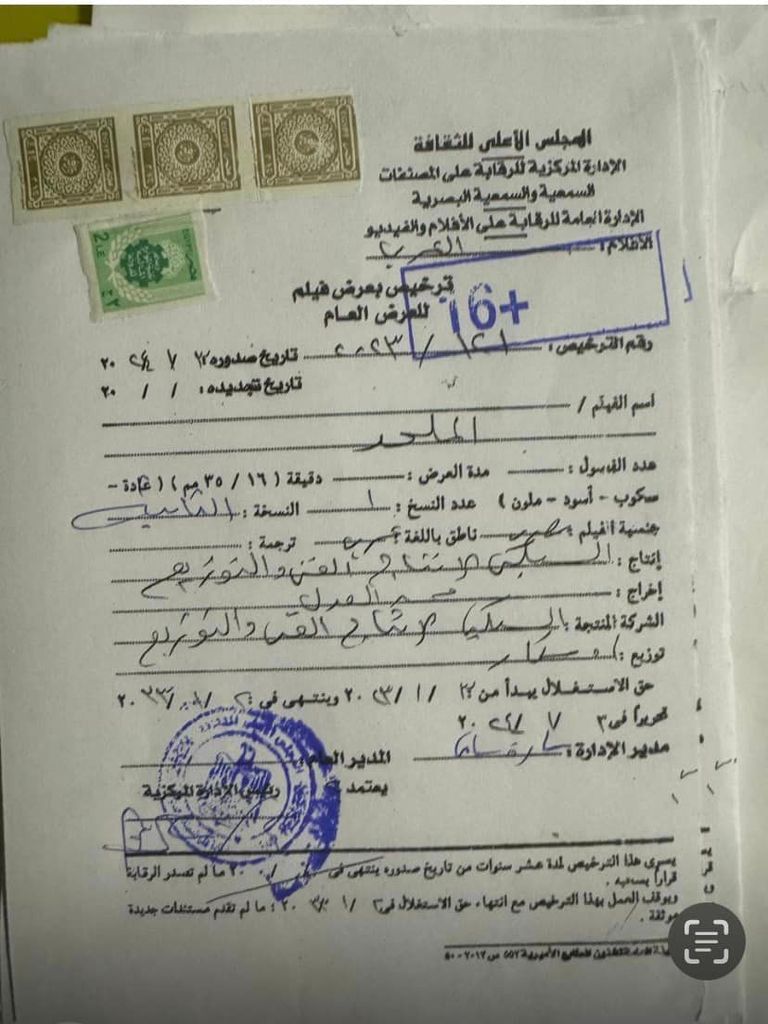 المجلس الأعلى للثقافة
الإدارة المركزية للرقابة على المصنفات
السمعية والسمعية البصرية
الإدارة العامة للرقابة على الأفلام والفيديو
الأفلام:
ترخيص بعرض فيلم
للعرض العام
16+
رقم الترخيص: ١٢١ / ٢٠٢٣ تاريخ صدوره ٧ / ٢٠٢٤
تاريخ تجديده: / / ٢٠
اسم الفيلم /
الملحد
عدد الفصول: مدة العرض: دقيقة ( ١٦ / ٣٥ مم ) ( عادة -
سكوب - أسود - ملون ) عدد النسخ: ١ النسخة: الثانية
جنسية الفيلم: ناطق باللغة: ترجمة:
إنتاج: السبكى للإنتاج الفنى والتوزيع
إخراج: محمد العدل
الشركة المنتجة: السبكى للإنتاج الفنى والتوزيع
توزيع:
حق الاستغلال يبدأ من / ١ / ٢٠٢٣ وينتهى فى:
تحريراً فى ٣ / ٧ / ٢٠٢٤
مدير الإدارة: المدير العام:
يعتمد،
رئيس الإدارة المركزية
يسرى هذا الترخيص لمدة عشر سنوات من تاريخ صدوره ينتهى فى ما لم تصدر الرقابة
قراراً بسحبه.
ويوقف العمل بهذا الترخيص مع انتهاء حق الاستغلال فى ما لم تقدم مستندات جديدة
موثقة.